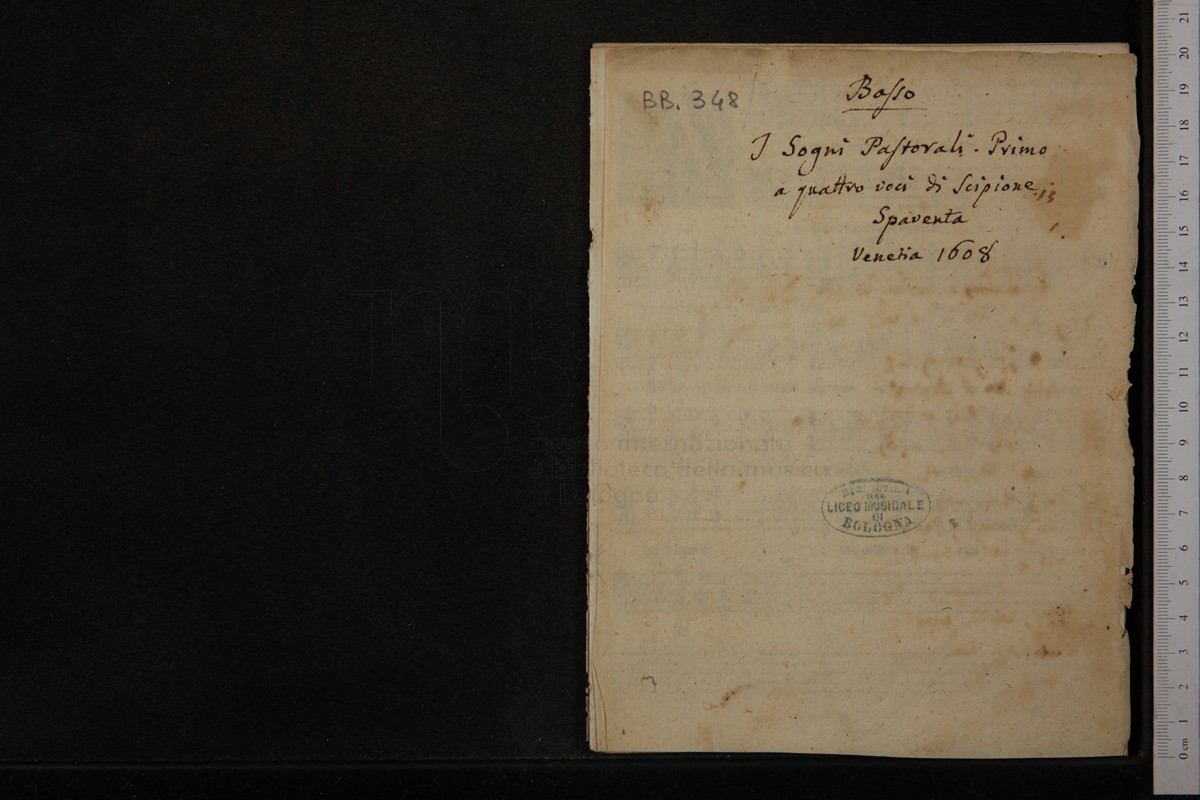 BB. 348
Basso
I Sogni Pastorali. Primo
a quattro voci di Scipione
Spaventa
Venetia 1608
museo internazionale
biblioteca della musica
LICEO MUSICALE
DI
BOLOGNA
3
21
20
19
18
17
16
15
14
13
12
11
10
9
8
7
6
5
4
3
2
1
0 cm